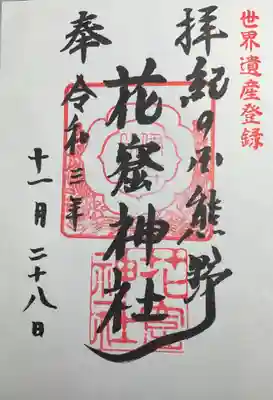 世界遺産登録
拝 紀の国熊野
花窟神社
奉 令和三年
十一月二十八日
花窟
神社